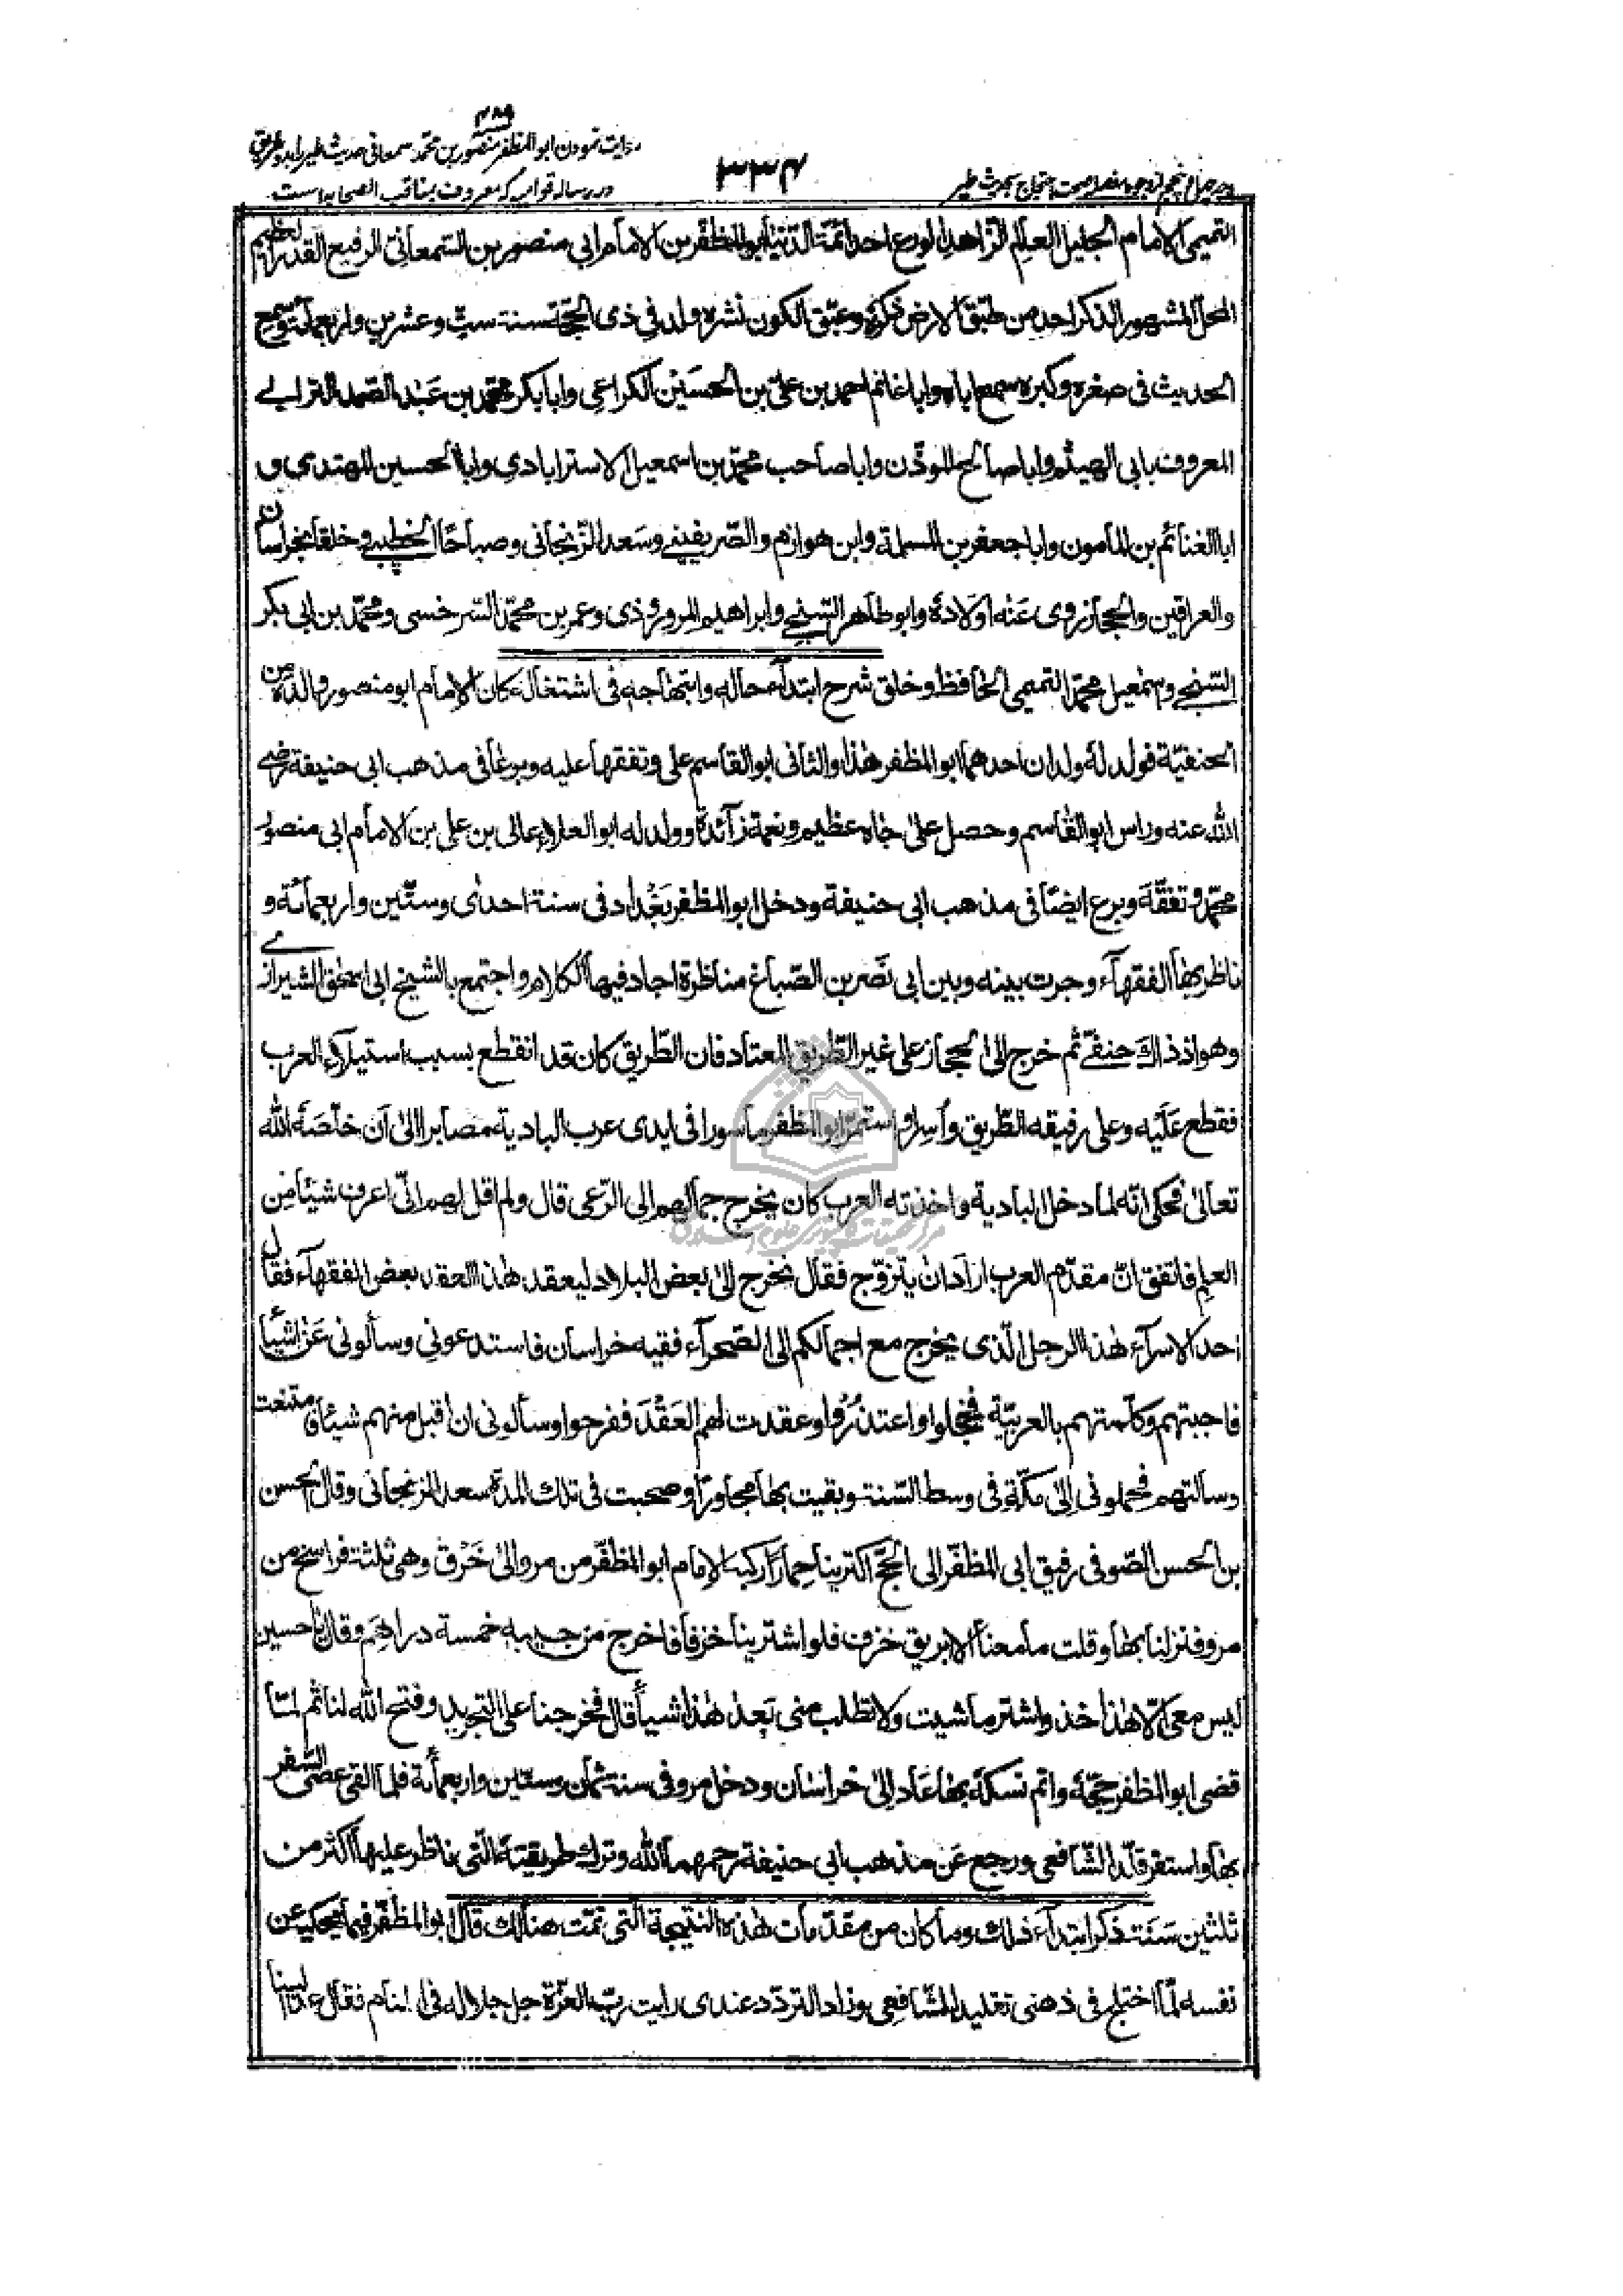 ۴۸۹
روایت نمودن ابو المظفر منصور بن محمد سمعانی حدیث طیر را بدو طریق
در رساله قوامیه که معروف بمناقب الصحابه است
۳۳۴
وجه پنجم از وجوه مفصله صحت احتجاج بحدیث طیر
التميمى الامام الجليل العالم الزاهد الورع احد ائمة الدنيا ابو المظفر بن الامام ابي منصور بن السمعاني الرفيع القدر العظيم
المحل المشهور الذكر احد من طبق الارض ذكره وعبق الكون نشره ولد في ذى الحجة سنة ست وعشرين واربعمائة وسمع
الحديث فى صغره وكبره سمع اباه وابا غانم احمد بن على بن الحسين الكراعي وابا بكر محمد بن عبد الصمد الترابى
المعروف بابى الهيثم وابا صالح المؤذن وابا صاحب محمد بن اسمعيل الاسترابادي وابا الحسين المهتدى و
ابا الغنائم بن المأمون وابا جعفر بن المسلمة وابن هوازم والصريفيني وسعد الزنجاني وصباحا الخطيبى وخلقا بخراسان
والعراقين والحجاز روى عنه اولاده وابو طاهر السنجى وابراهيم المروروذى وعمر بن محمد السرخسى ومحمد بن ابى بكر
السنجى واسمعيل محمد التميمى الحافظ وخلق شرح ابتداء حاله وابتهاجه فى اشتغاله كان الامام ابو منصور والده من
الحنفية فولد له ولدان احدهما ابو المظفر هذا والثانى ابو القاسم على وتفقها عليه وبرعا فى مذهب ابى حنيفة رضى
الله عنه وراس ابو القاسم وحصل على جاه عظيم ونعمة زائدة وولد له ابو العلاء عالى بن على بن الامام ابى منصور
محمد وتفقه وبرع ايضا فى مذهب ابى حنيفة ودخل ابو المظفر بغداد فى سنة احدى وستين واربعمائة و
ناظر بها الفقهاء وجرت بينه وبين ابى نصر بن الصباغ مناظرة اجاد فيها الكلام واجتمع بالشيخ ابى اسحق الشيرازى
وهو اذ ذاك حنفى ثم خرج الى الحجاز على غير الطريق المعتاد فان الطريق كان قد انقطع بسبب استيلاء العرب
فقطع عليه وعلى رفيقه الطريق وأسر واستمر ابو المظفر مأسورا فى ايدى عرب البادية مصابرا الى ان خلصه الله
تعالى فحكى انه لما دخل البادية واخذته العرب كان يخرج جمالهم الى الرعى قال ولم اقل لهم انى اعرف شيئا من
العلم فاتفق ان مقدم العرب اراد ان يتزوج فقال نخرج الى بعض البلاد ليعقد هذا العقد بعض الفقهاء فقال
احد الاسراء هذا الرجل الذى يخرج مع اجمالكم الى الصحراء فقيه خراسان فاستدعوني وسألونى عن اشياء
فاجبتهم وكلمتهم بالعربية فخجلوا واعتذروا وعقدت لهم العقد ففرحوا وسألونى ان اقبل منهم شيئا فامتنعت
وسألتهم فحملونى الى مكة فى وسط السنة وبقيت بها مجاورا وصحبت فى تلك المدة سعد الزنجانى وقال الحسن
بن الحسن الصوفى رفيق ابى المظفر الى الحج اكترينا حمارا ركبه الامام ابو المظفر من مرو الى خرق وهى ثلثة فراسخ من
مرو فنزلنا بها وقلت ما معنا الا ابريق خزف فلو اشترينا خزفا فاخرج من جيبه خمسة دراهم وقال يا حسين
ليس معى الا هذا خذ واشتر ما شيت ولا تطلب منى بعد هذا شيأ قال فخرجنا على التجريد وفتح الله لنا ثم لما
قضى ابو المظفر حجه واتم نسكه بها عاد الى خراسان ودخل مرو فى سنة ثمان وستين واربعمائة فلما القى عصى السفر
بها واستقر قلد الشافعى ورجع عن مذهب ابى حنيفة رحمهما الله وترك طريقته التى ناظر عليها اكثر من
ثلثين سنة ذكر ابتداء ذلك وما كان من مقدمات هذه النتيجة التى تمت هنالك قال ابو المظفر فيما يحكيه عن
نفسه لما اختلج فى ذهنى تقليد الشافعى وزاد التردد عندى رايت رب العزة جل جلاله فى المنام فقال عد الينا
مرکز تحقیقات کامپیوتری علوم اسلامی